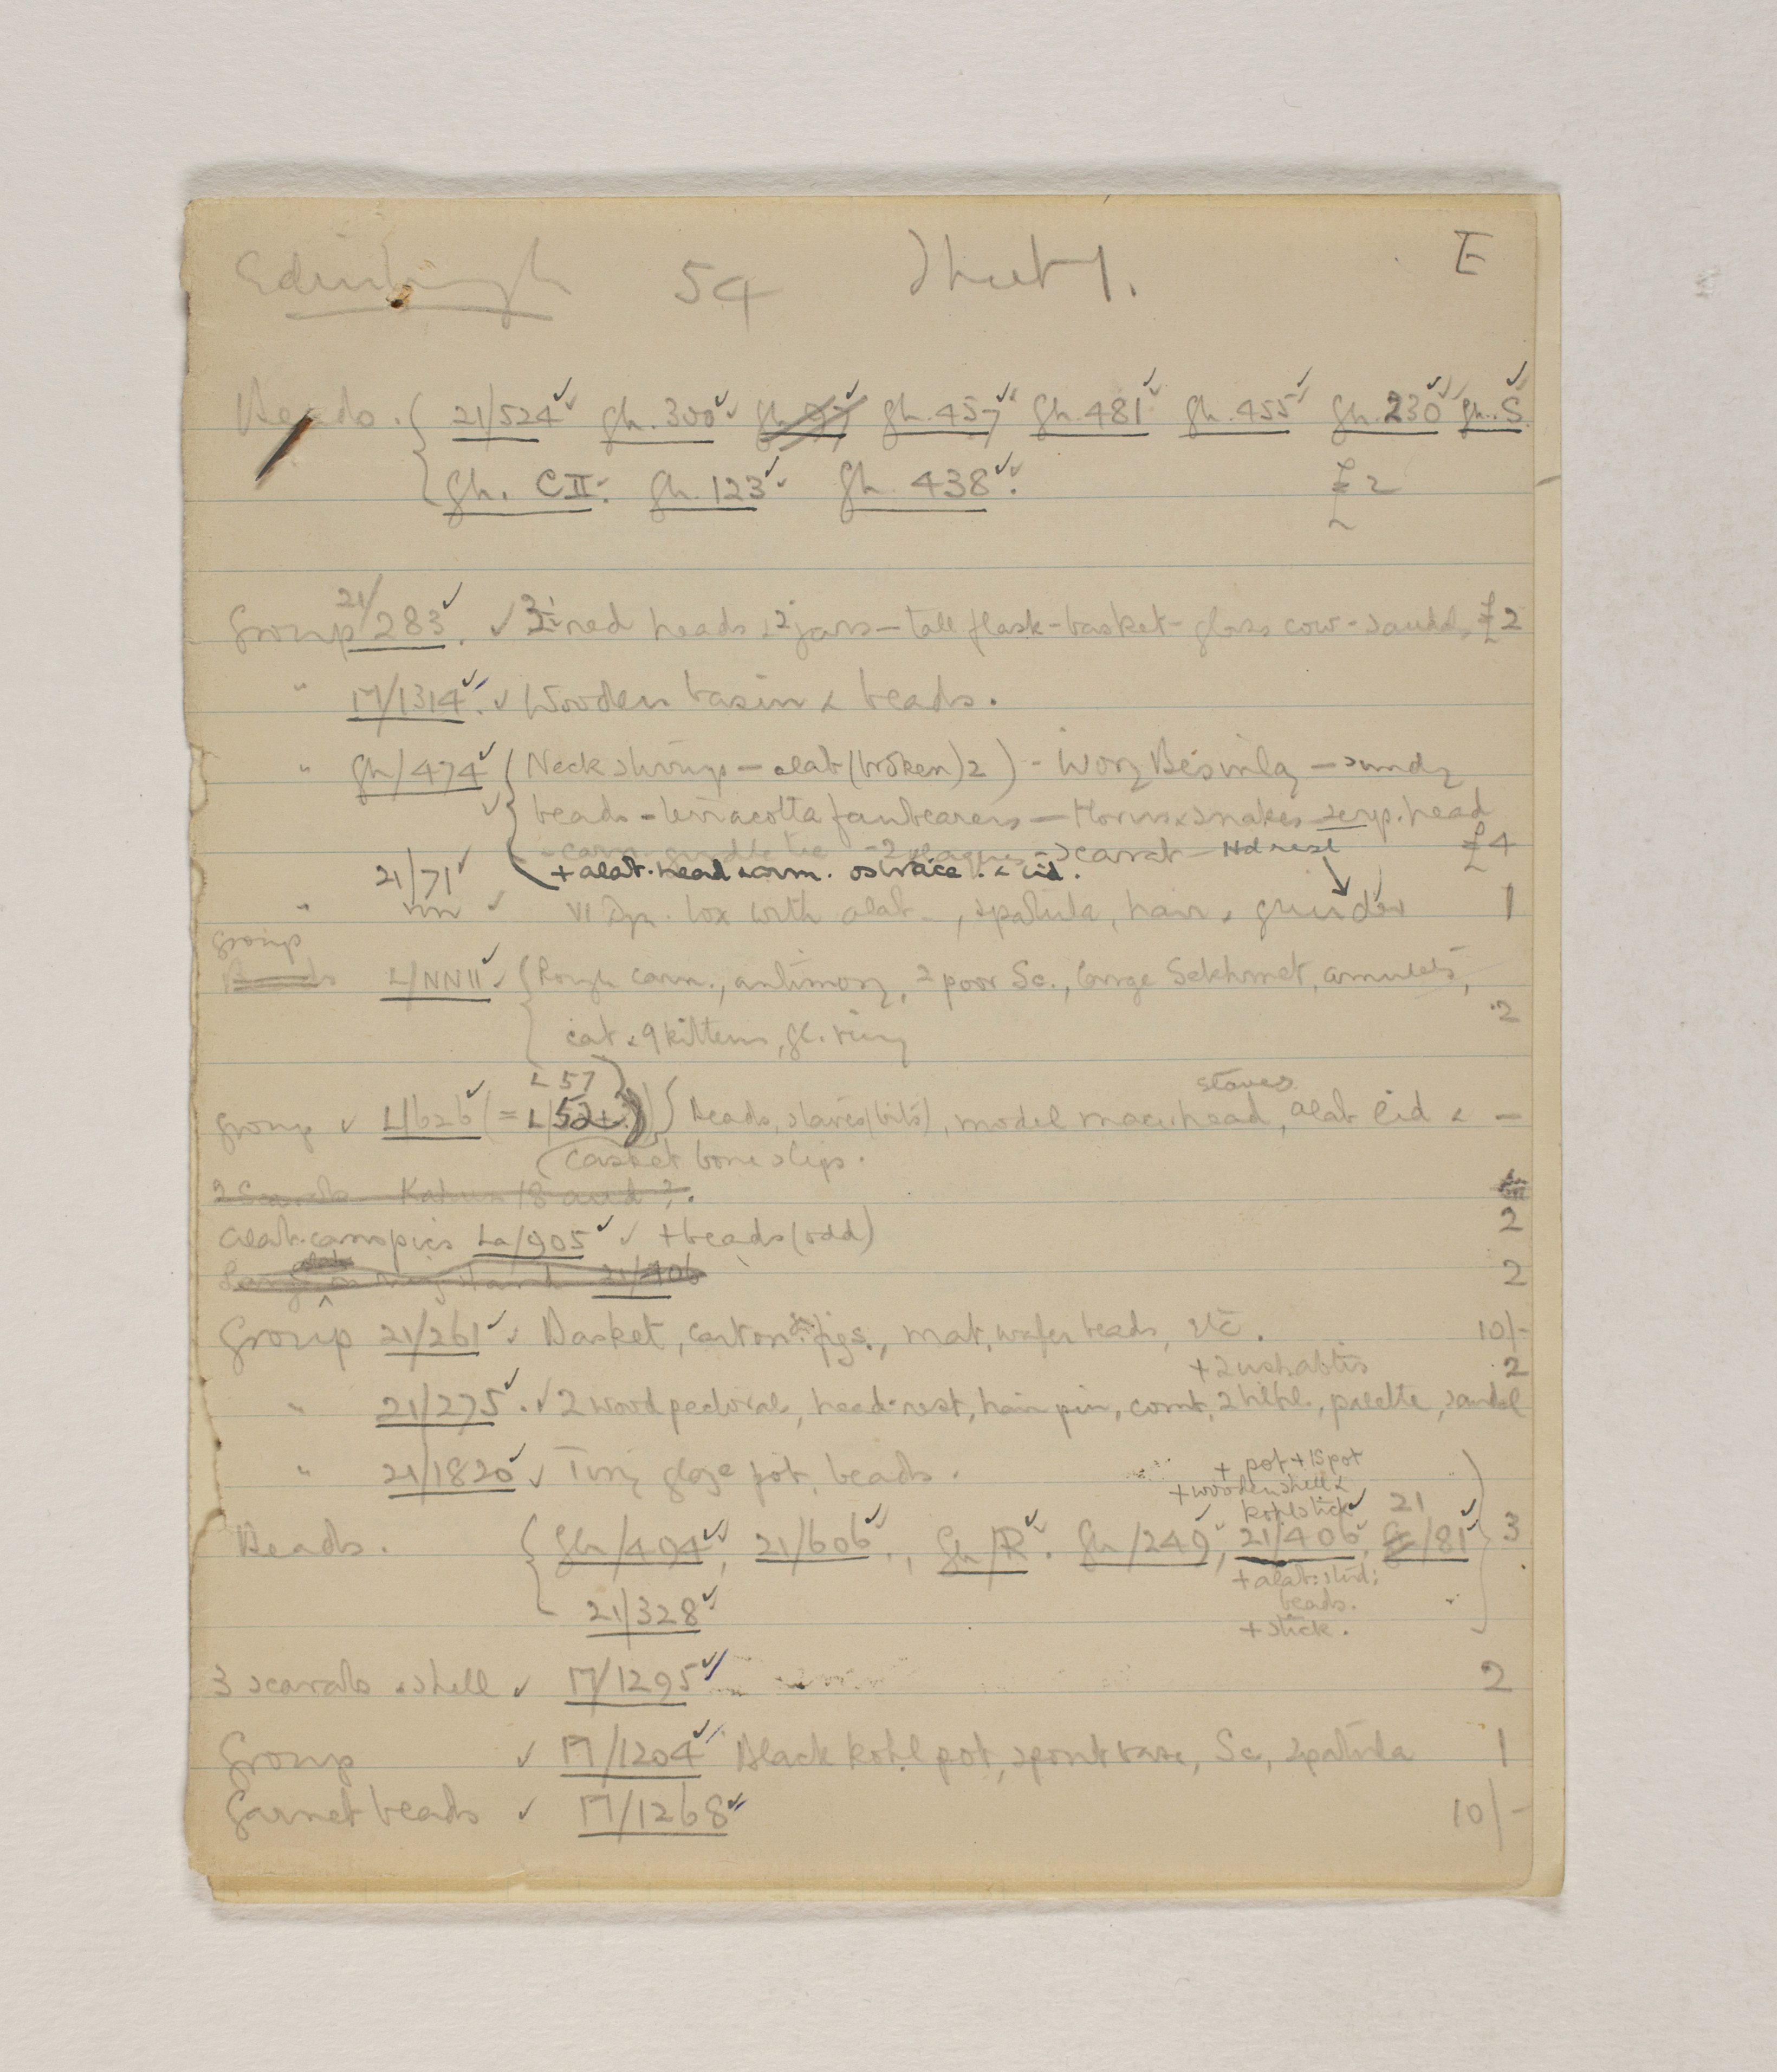 Edinburgh 54 Sheet 1. E
Beads. 21/524 gh. 300 gh. 97 gh. 457 gh. 481 gh. 455 gh. 230 gh. S
gh. CII. gh. 123 gh. 438 £2
Group 21/283. red heads & 2 jars – tall flask – basket – glass cow – sandals, £2
" M/1314. Wooden basin & beads.
" gh/474 Neck strings – alab (broken) 2) – Ivory – sundry
beads – terracotta fanbearers – Horus & snakes – serp. head
– carn. girdle tie – 2 plaques – scarab – Hd rest £4
+ alab. head & arm. & lid.
" 21/71 VI Dyn. box with alab –, spatula, hair & grinder 1
group
Beads L/NNII Rough carn., antimony, 2 poor Sc., large Sekhmet, amulets,
cat & 9 kittens, gl. ring 2
L 57
staves
Group L/626 (= L/ ) Beads, staves (bits), model macehead, alab lid & –
casket bone slips.
2 Scarabs Kahun 18 and ?.
Alab. canopics La/905 + beads (odd) 2
on ring stand 21/406 2
Group 21/261 Basket, carton. figs., mat, wafer beads, etc. 10/-
+ 2 ushabtis 2
" 21/275. 2 wood pectorals, head-rest, hair pin, comb, 2 , palette, sandal
" 21/1820 Tiny glaze pot, beads.
+ pot + IS pot
+ wooden shell &
kohl stick 21
Beads. gh/494, 21/606, gh/R. gh/249, 21/406, /81 3.
+ alab: stid:
beads.
21/328
+ stick.
3 scarabs & shell M/1295 2
Group M/1204 Black kohl pot, spout vase, Sc, spatula 1
Garnet beads M/1268 10/-